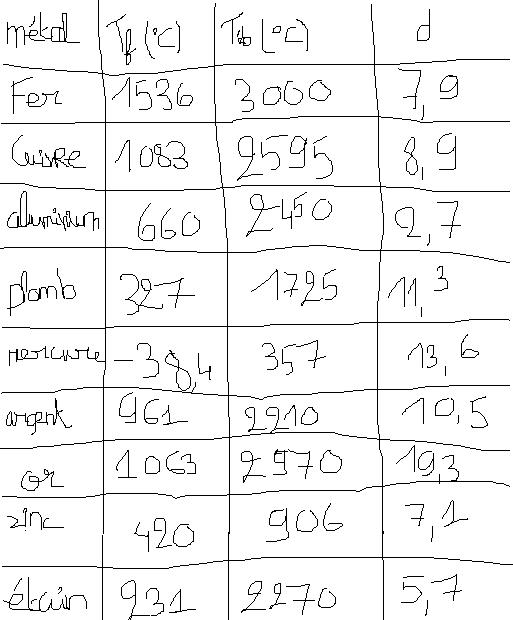 métal Tf (°C) Tb (°C) d
Fer 1536 3000 7,9
Cuivre 1083 2595 8,9
aluminium 660 2450 2,7
plomb 327 1725 11,3
mercure -38,4 357 13,6
argent 961 2210 10,5
or 1063 2970 19,3
zinc 420 906 7,1
étain 231 2270 5,7